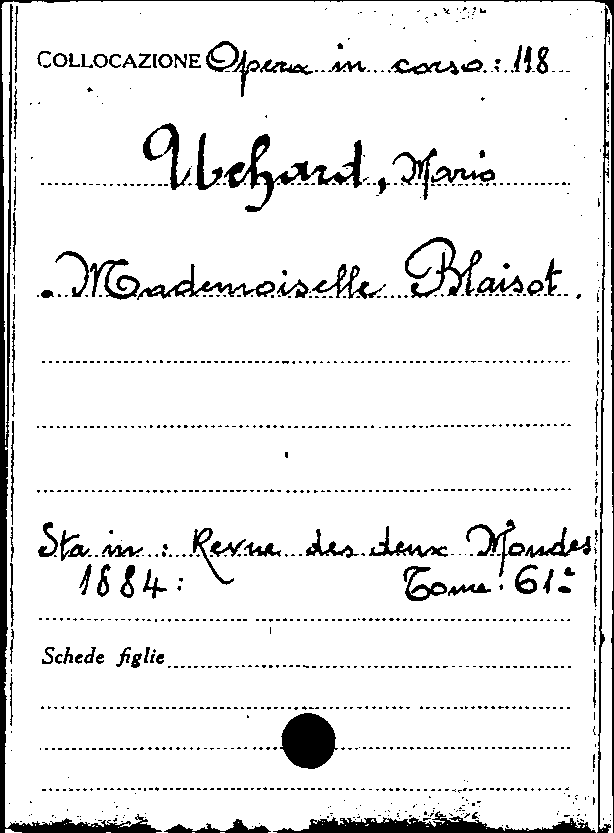 COLLOCAZIONE Opera in corso: 118
Uchard, Mario
Mademoiselle Blaisot.
Sta in: Revue des deux Mondes
1884: Tome: 61°
Schede figlie